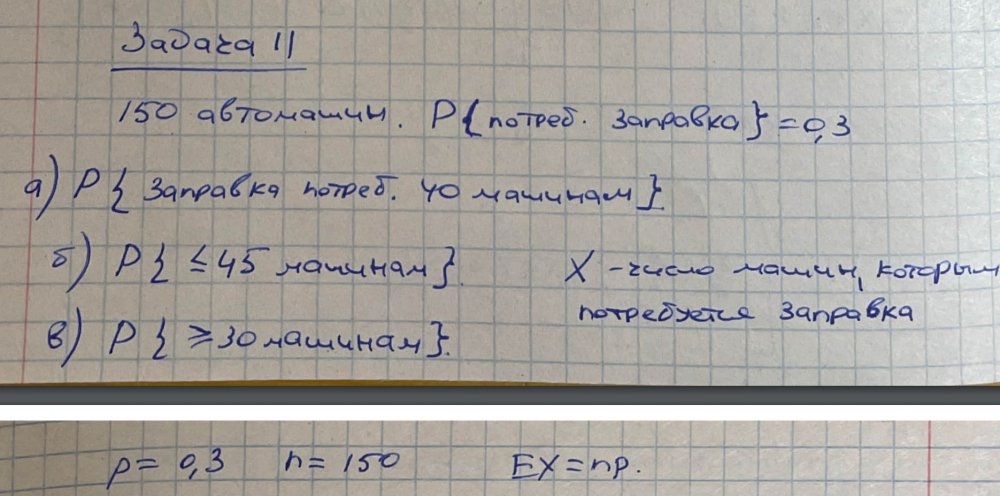 Задача 11
150 автомашин. P{потреб. заправка}=0,3
а) P{заправка потреб. 40 машинам}.
б) P{≤45 машинам}.
X - число машин, которым
потребуется заправка
в) P{≥30 машинам}.
p= 0,3 n= 150 EX=np.